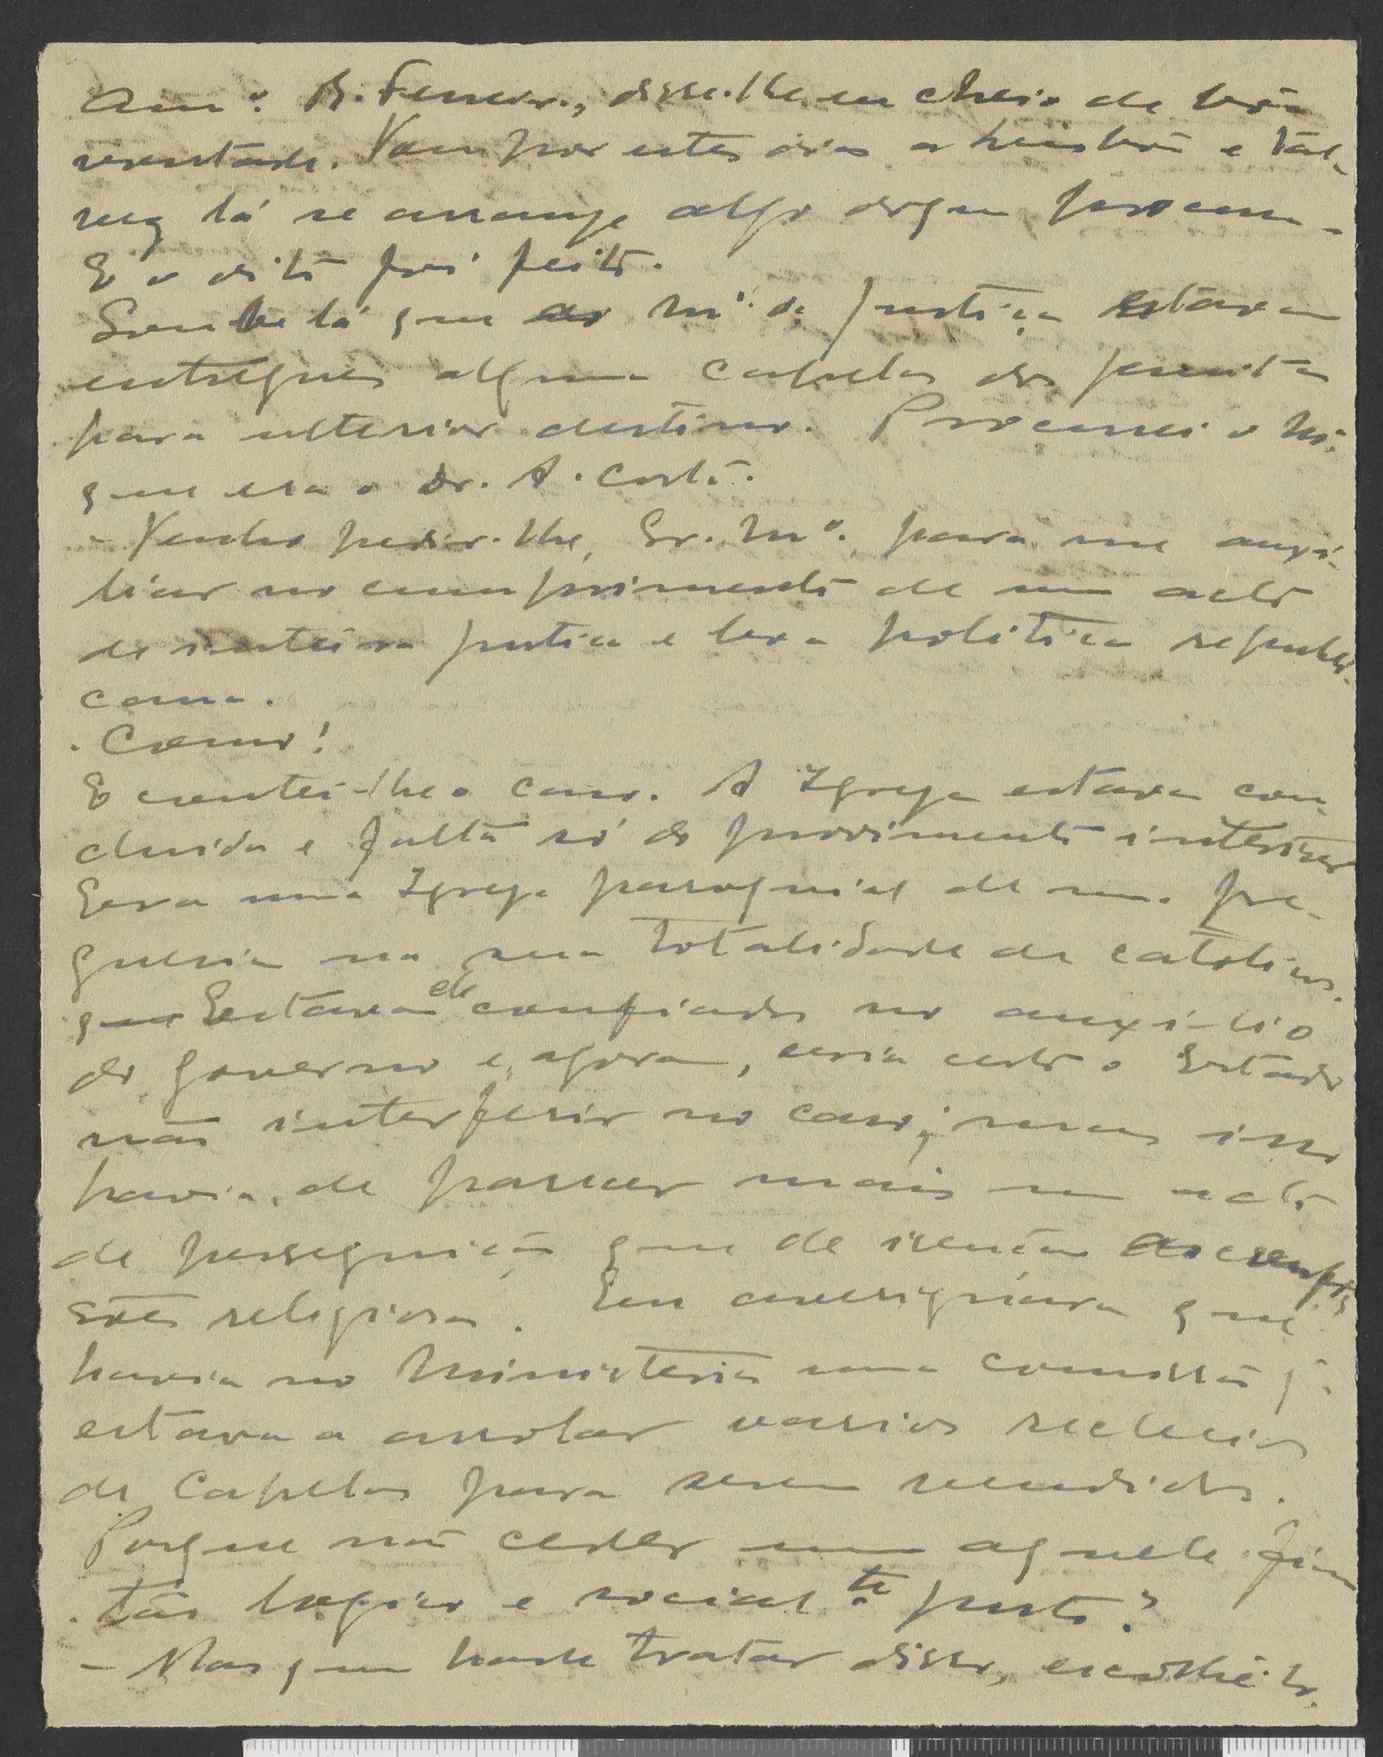 Am.º B. Ferreira, disse-lhe eu cheio de boa
vontade. Vou por estes dias a Lisboa e tal-
vez lá se arranje algo do que procura.
E o dito foi feito.
Soube lá que ao M.º da Justiça estavam
entregues algumas capelas dos jesuitas
para ulterior destino. Procurei o M.º
que era o Dr. A. Costa.
- Venho pedir-lhe, Sr. M.º para me auxi-
liar no cumprimento de um acto
de inteira justica e boa politica republi-
cana.
- Como!
E contei-lhe o caso. A Igreja estava con-
cluida e falta só do provimento interior
Era uma Igreja paroquial de uma fre-
guesia na sua totalidade de catolicos.
que Estavam confiados no auxilio
do governo e, agora, seria certo o Estado
não interferir no caso; mas isso
havia de parecer mais um acto
de perseguição que de isenção
religiosa. Eu averiguára que
havia no Ministerio uma comissão já
estava a arrolar varios recheios
de Capelas para serem vendidos.
Porque não ceder um aquele fim
tão logico e social.te justo?
- Mas quem hade tratar disso, escolhê-lo.